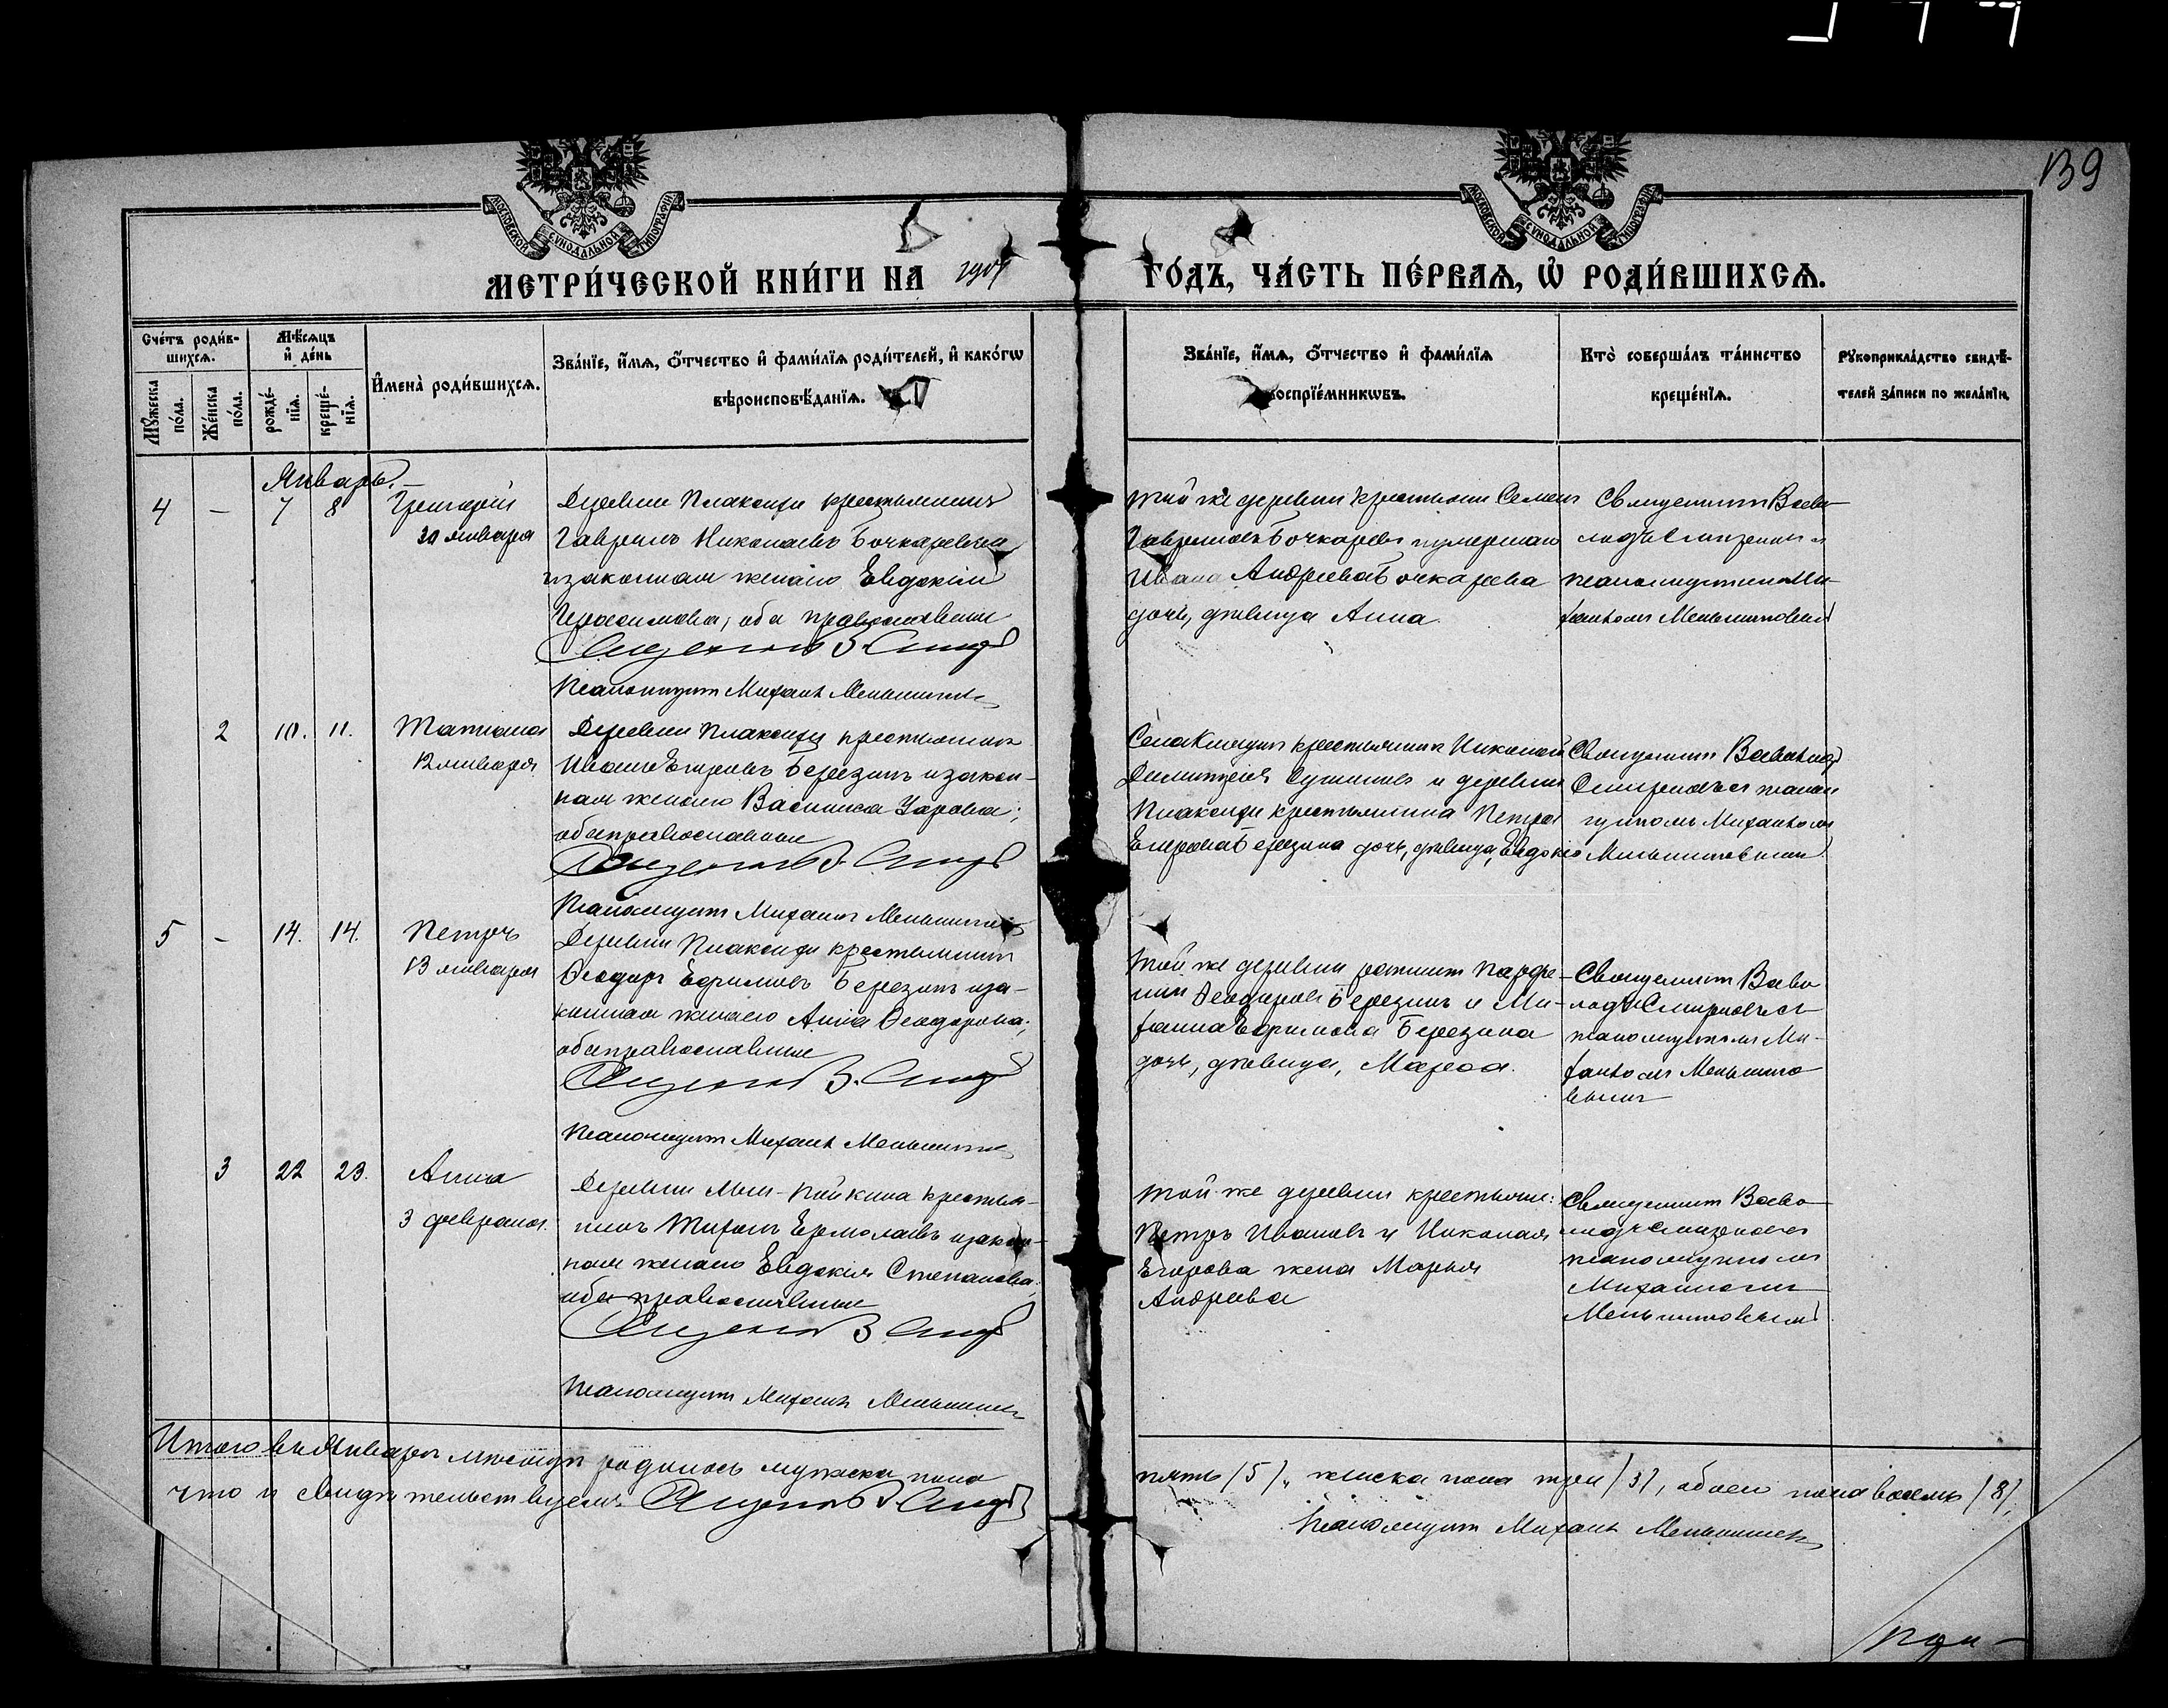 139
МОСКОВСКОЙ СУНОДАЛЬНОЙ ТИПОГРАФІИ
МОСКОВСКОЙ СУНОДАЛЬНОЙ ТИПОГРАФІИ
МЕТРИ́ЧЕСКОЙ КНИ́ГИ НА
ГО́ДЪ, ЧА́СТЬ ПЕ́РВАѦ, Ѡ҆ РОДИ́ВШИХСѦ.
Сче́тъ роди́в-
шихсѧ.
Мѣ́сѧцъ
и҆ де́нь
Мꙋ́жеска
по́ла.
Же́нска
по́ла.
рожде́-
нїѧ.
креще́-
нїѧ.
И҆мена̀ роди́вшихсѧ.
Зва́нїе, и҆́мѧ, ѻ҆́тчество и҆ фами́лїѧ роди́телей, и҆ како́гѡ
вѣроисповѣ́данїѧ.
Зва́нїе, и҆́мѧ, ѻ҆́тчество и҆ фами́лїѧ
воспрїе́мникѡвъ.
Кто̀ соверша́лъ та́инство
креще́нїѧ.
Рꙋкоприкла́дство свидѣ́-
телей за́писи по жела́нїю.
Январь.
4 - 7 8 Григорій
30 января
Деревни Плаксихи крестьянинъ
Гавріилъ Николаевъ Бочкаревъ и
законная жена его Евдокія
Герасимова, оба православные
Священникъ В. Смир
Псаломщикъ Михаилъ Меньшиков
той же деревни крестьяни Семенъ
Гавріиловъ Бочкаревъ и умершаго
Ивана Андреева Бочкарева
дочь, девица Анна.
Священникъ Всево
лодъ Смирновъ съ
псаломщикомъ Ми-
хаиломъ Меньшиковымъ
2 10. 11. Татіана
12 января
Деревни Плаксихи крестьянинъ
Иванъ Егоровъ Березинъ и закон-
ная жена его Васиlиса Уарова;
оба православные
Священникъ В. Смир
Псаломщикъ Михаилъ Меньшиков
Села крестьянинъ Николай
Димитріевъ и деревни
Плаксихи крестьянина Петра
Егорова Березина дочь, девица, Евдокія
Священникъ Всеволодъ
Смирновъ съ псалом
щикомъ Михаиломъ
Меньшиковымъ
5 - 14. 14. Петръ
13 января
Деревни Плаксихи крестьянинъ
Ѳеодоръ Ефимовъ Березинъ и за-
конная жена его Анна Ѳеодорова;
оба православные
Священникъ В. Смир
Псаломщикъ Михаилъ Меньшиков
той же деревни Парфе-
ній Ѳеодоровъ Березинъ и Ми-
хаила Ефимова Березина
дочь, девица, Марѳа.
Священникъ Всево
лодъ Смирновъ съ
псаломщикомъ Ми-
хаиломъ Меньшико
вымъ
3 22 23. Анна
3 февраля
Деревни крестья-
нинъ Ермолаевъ и закон-
ная жена его Евдокія Степанова;
оба православные
Священникъ В. Смир
Псаломщикъ Михаилъ Меньшиков
той же деревни крестьяни:
Петръ Ивановъ и Николая
Егорова жена Марья
Андреева
Священникъ Всево
лодъ Смирновъ съ
псаломщикомъ
Михаиломъ
Меньшиковымъ
Итого въ Январѣ мѣсяцѣ родилось мужеска пола
пять (5), женска пола три (3), обоего пола восемь (8),
что и свидѣтельствуемъ Священникъ В. Смир
Псаломщикъ Михаилъ Меньшиков